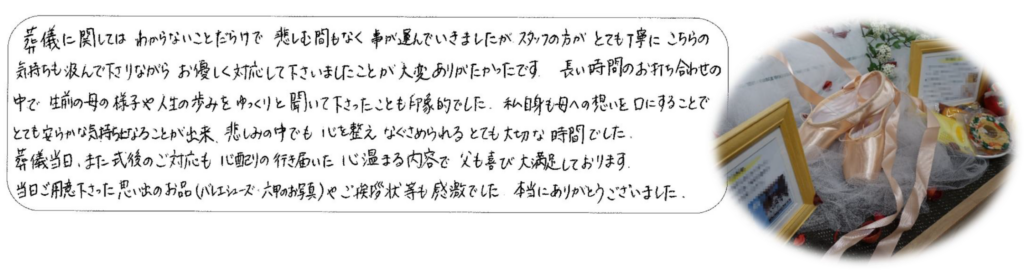 葬儀に関しては わからないことだらけで 悲しむ間もなく 事が運んでいきましたが スタッフの方が とても丁寧に こちらの
気持ちも汲んで下さりながら お優しく対応して下さいましたことが 大変ありがたかったです. 長い時間のお打ち合わせの
中で 生前の母の様子や人生の歩みを ゆっくりと聞いて下さったことも印象的でした. 私自身も母への想いを口にすることで
とても安らかな気持ちとなることが出来、悲しみの中でも 心を整え なぐさめられる とても大切な時間でした.
葬儀当日、また式後のご対応も 心配りの行き届いた 心温まる内容で 父も喜び 大満足しております.
当日ご用意下さった思い出のお品(バレエシューズ・六甲のお写真)や ご挨拶状等も感激でした. 本当にありがとうございました.